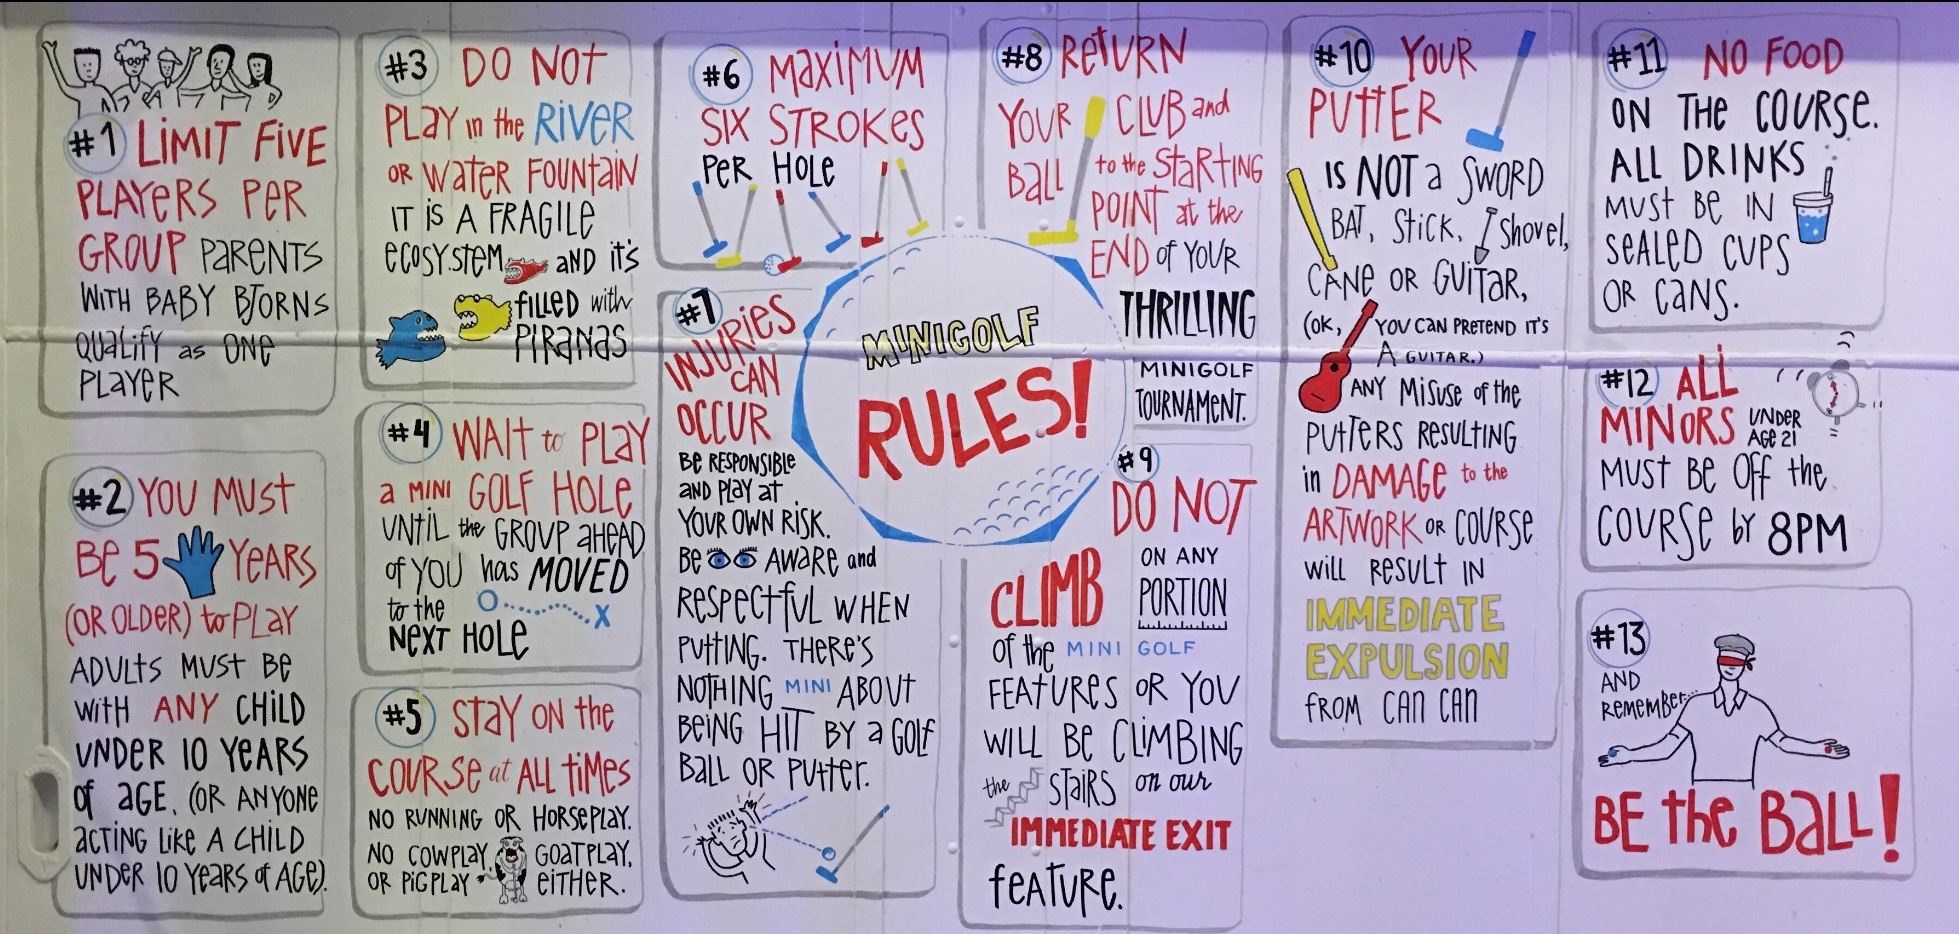 #1 LIMIT FIVE
PLAYERS PER
GROUP PARENTS
WITH BABY BJORNS
QUALIFY as ONE
PLAYER
#2 YOU MUST
BE 5 YEARS
(OR OLDER) to PLAY
ADULTS MUST BE
WITH ANY CHILD
UNDER 10 YEARS
of AGE. (OR ANYONE
ACTING LIKE A CHILD
UNDER 10 YEARS of AGE).
#3 DO NOT
PLAY in the RIVER
OR WATER FOUNTAIN
IT IS A FRAGILE
ECOSYSTEM AND it's
filled with
PIRANAS
#4 WAIT to PLAY
a MINI GOLF HOLE
UNTIL the GROUP AHEAD
of YOU has MOVED
to the
NEXT HOLE
#5 STAY ON the
COURSE at ALL TIMES
NO RUNNING OR HORSEPLAY.
NO COWPLAY, GOATPLAY,
OR PIGPLAY EITHER.
#6 MAXIMUM
SIX STROKES
PER HOLE
#7
INJURIES
CAN
OCCUR
BE RESPONSIBLE
AND PLAY AT
YOUR OWN RISK.
BE AWARE and
RESPECTFUL WHEN
PUTTING. THERE'S
NOTHING MINI ABOUT
BEING HIT BY a GOLF
BALL OR PUTTER.
MINIGOLF
RULES!
#8 RETURN
YOUR CLUB and
BALL to the STARTING
POINT at the
END of YOUR
THRILLING
MINIGOLF
TOURNAMENT.
#9
DO NOT
CLIMB ON ANY
PORTION
of the MINI GOLF
FEATURES OR YOU
WILL BE CLIMBING
the STAIRS on our
IMMEDIATE EXIT
feature.
#10 YOUR
PUTTER
IS NOT a SWORD
BAT, STICK, Shovel,
CANE OR GUITAR,
(OK, YOU CAN PRETEND IT'S
A GUITAR.)
ANY MISUSE of the
PUTTERS RESULTING
in DAMAGE to the
ARTWORK OR COURSE
will RESULT IN
IMMEDIATE
EXPULSION
fROM CAN CAN
#11 NO FOOD
ON THE COURSE.
ALL DRINKS
MUST BE IN
SEALED CUPS
OR CANS.
#12 ALL
MINORS UNDER
AGE 21
MUST BE Off the
COURSE by 8PM
#13
AND
REMEMBER...
BE the BALL!